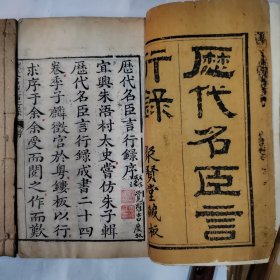 歷代名臣言
行錄
賢堂藏板
歷代名臣言行錄序
宜興朱浯村太史嘗仿朱子輯
歷代名臣言行錄成書二十四
卷季子麟徵官於粵鏤板以行
求序于余余受而閱之作而